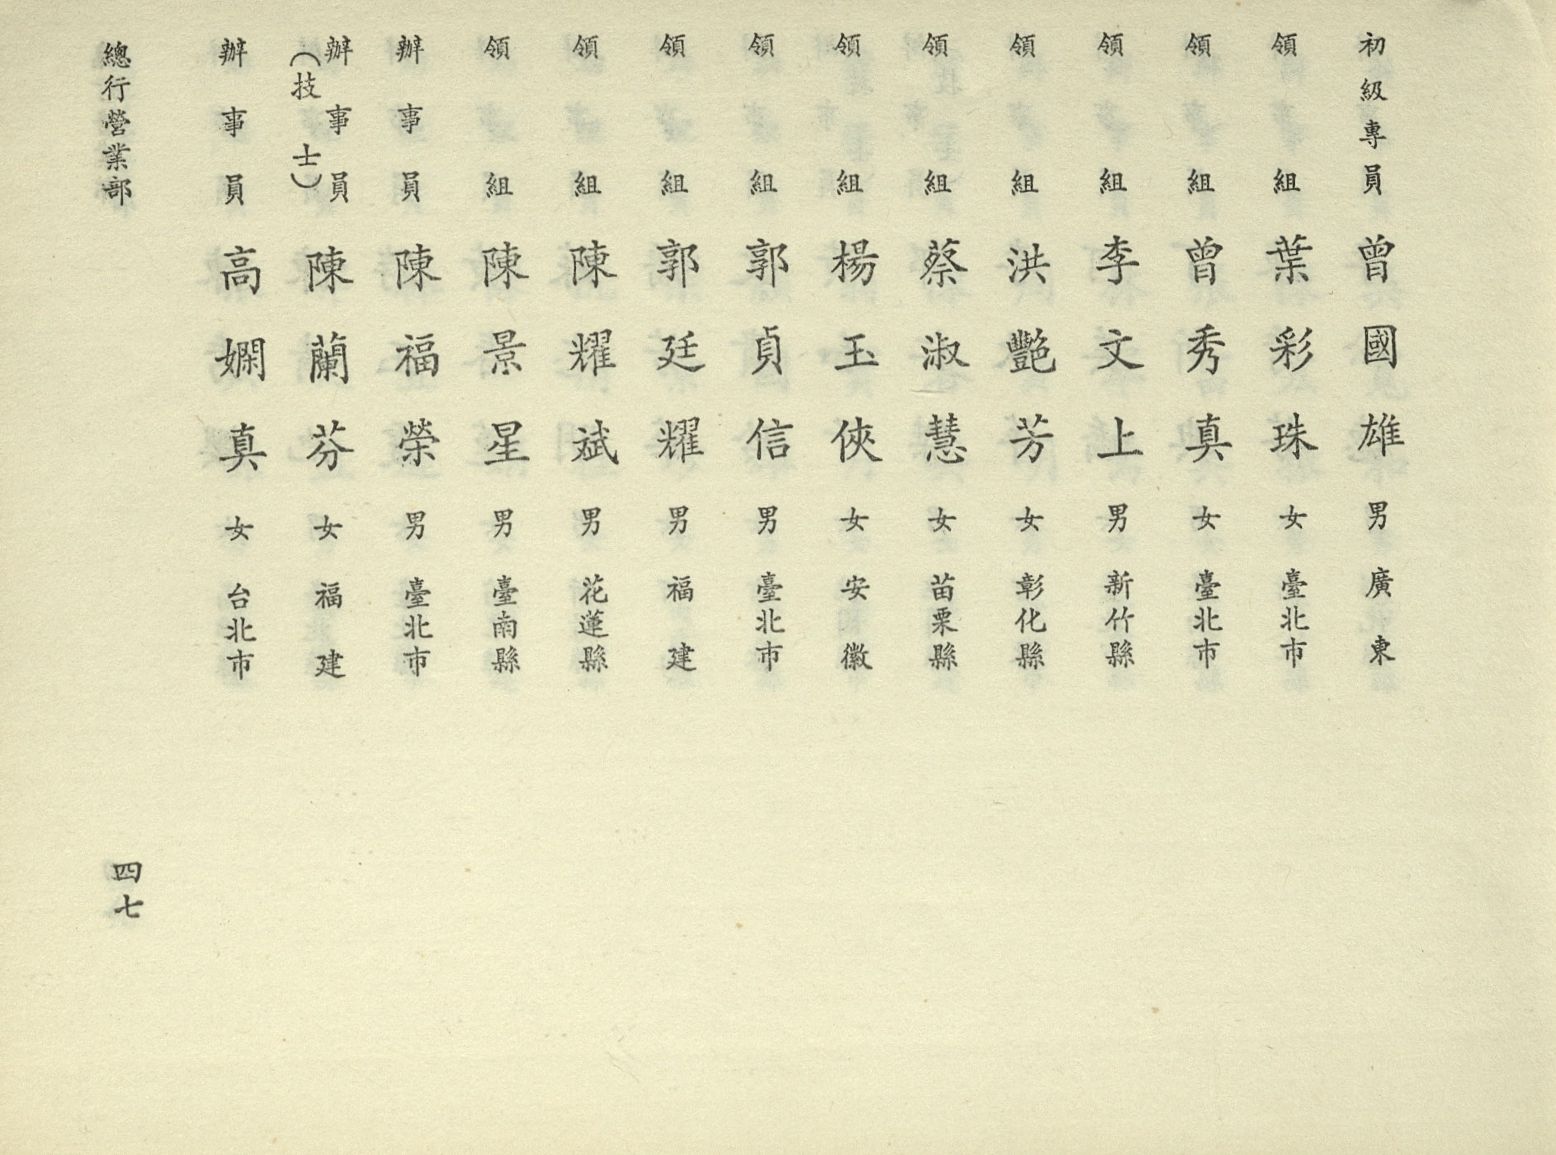 初級專員 曾國雄 男 廣東
領組 葉彩珠 女 臺北市
領組 曾秀真 女 臺北市
領組 李文上 男 新竹縣
領組 洪艷芳 女 彰化縣
領組 蔡淑慧 女 苗栗縣
領組 楊玉俠 女 安徽
領組 郭貞信 男 臺北市
領組 郭廷耀 男 福建
領組 陳耀斌 男 花蓮縣
領組 陳景星 男 臺南縣
辦事員 陳福榮 男 臺北市
辦事員（技士） 陳蘭芬 女 福建
辦事員 高嫻真 女 台北市
總行營業部 四七